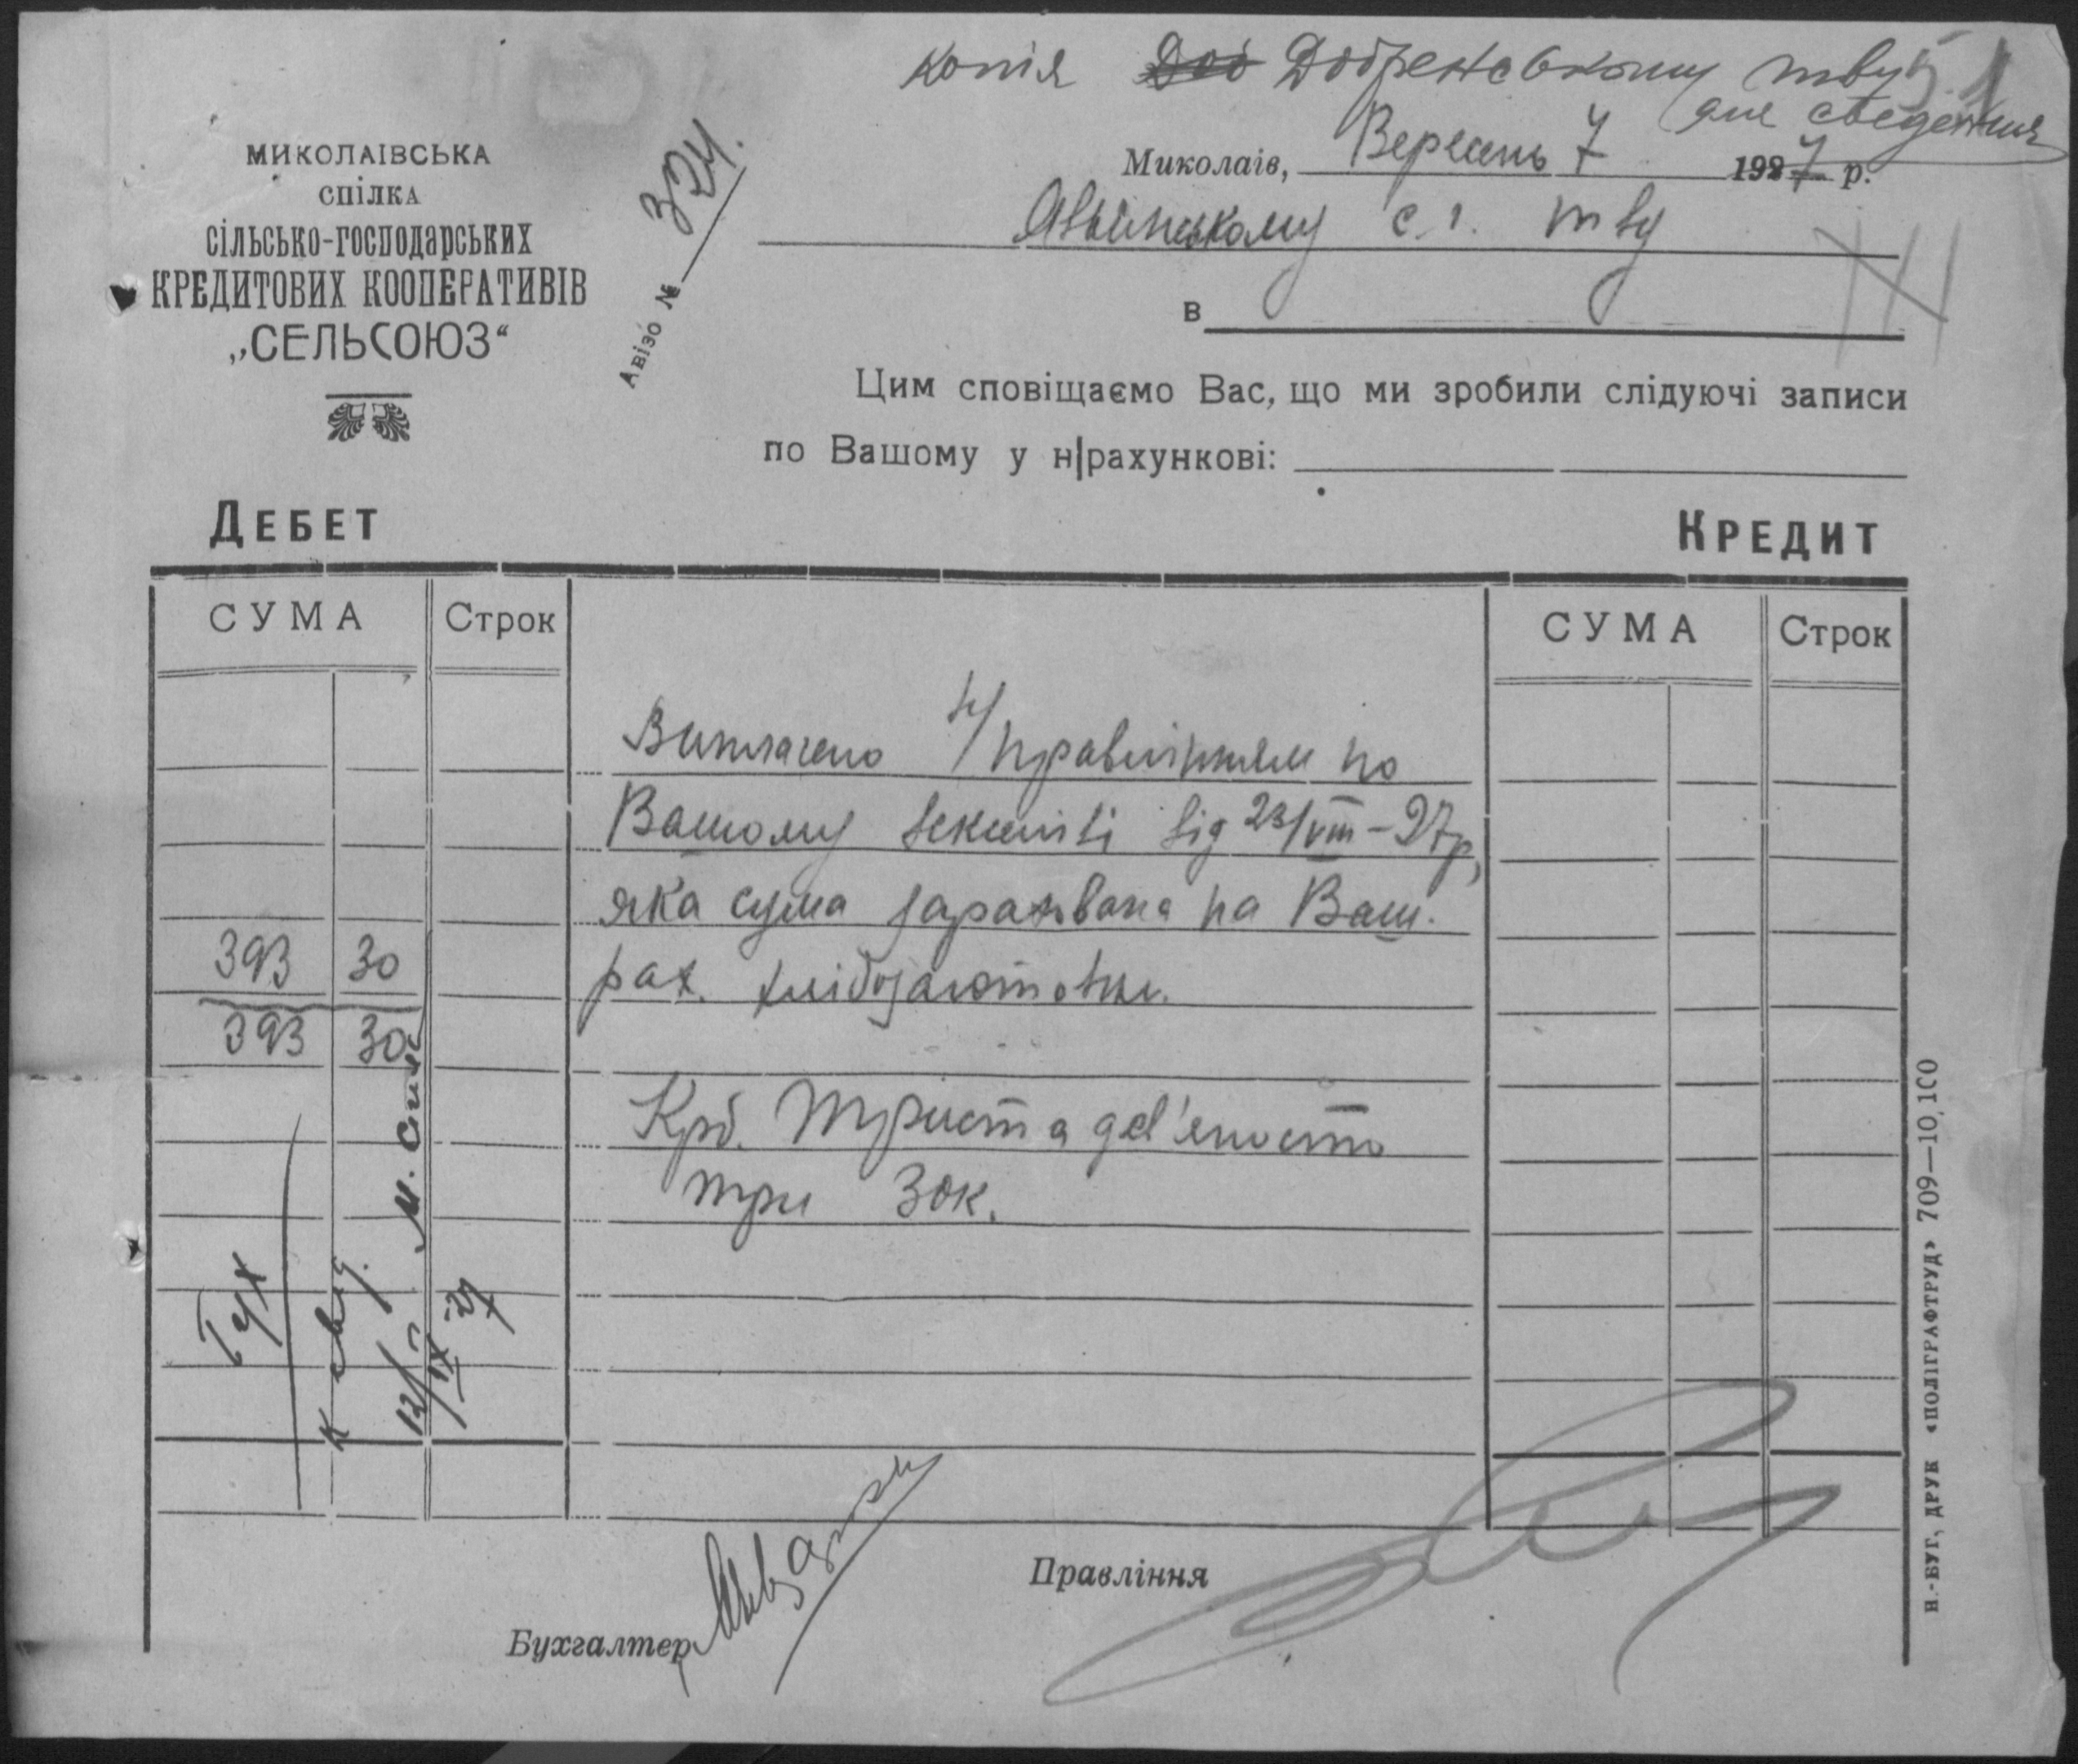 копія Добренському тву
для сведения
МИКОЛАІВСЬКА
СПІЛКА
СІЛЬСЬКО-ГОСПОДАРСЬКИХ
КРЕДИТОВИХ КООПЕРАТИВІВ
„СЕЛЬСОЮЗ“
Авізо № 324.
Миколаів, Вересень 7 1927 р.
с. г. тву
в
Цим сповіщаємо Вас, що ми зробили слідуючі записи
по Вашому у н|рахункові:
ДЕБЕТ
КРЕДИТ
СУМА Строк СУМА Строк
Виплачено Н/правлінням по
Вашому векселі від 23/VIII–27р,
яка сума зарахвана на Ваш.
393 30 рах. хлібозаготовки.
393 30
Крб. Триста дев'яносто
три 30к.
12/IX-27
Бухгалтер
Правління
Н.-БУГ, ДРУК «ПОЛІГРАФТРУД» 709—10,100